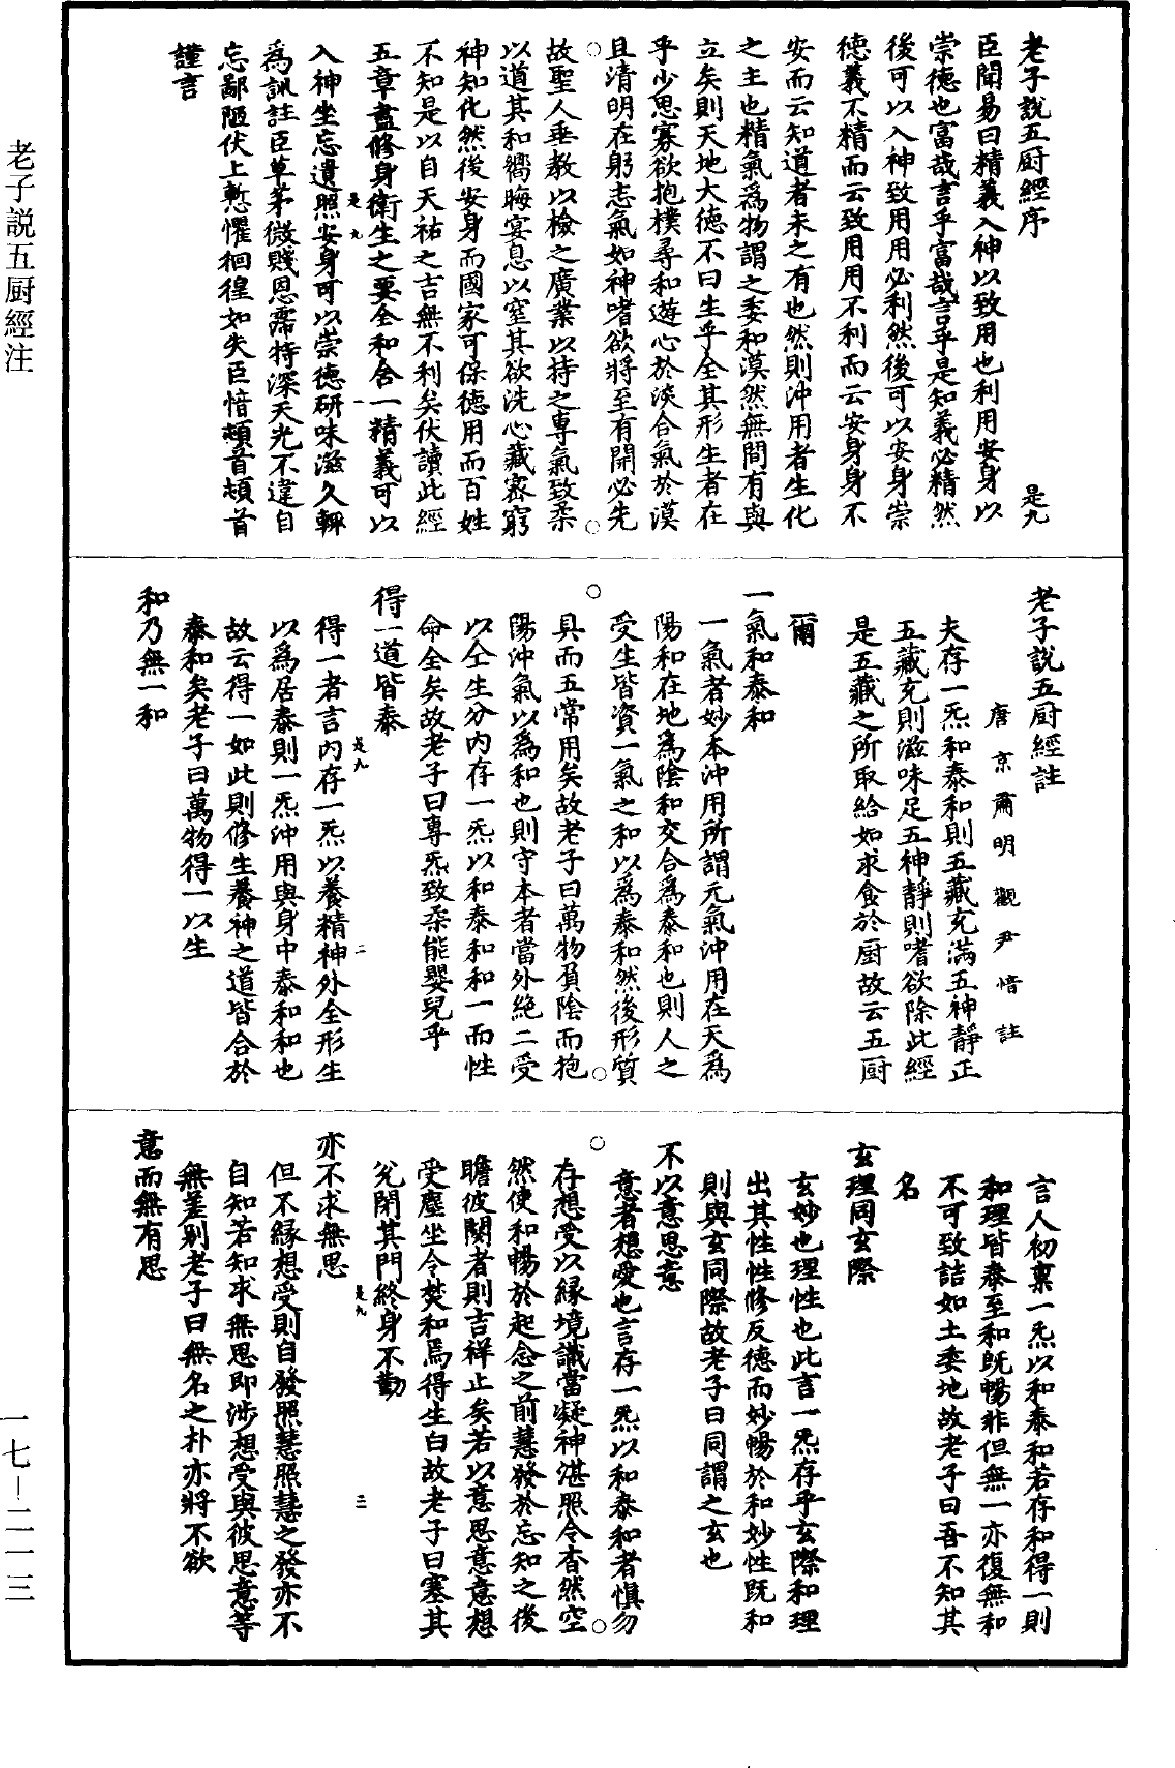 老子說五厨經序
是九
臣聞易曰精義入神以致用也利用安身以
崇德也富哉言乎富哉言乎是知義必精然
後可以入神致用用必利然後可以安身崇
德義不精而云致用用不利而云安身身不
安而云知道者未之有也然則沖用者生化
之主也精氣為物謂之委和漠然無間有與
立矣則天地大德不曰生乎全其形生者在
乎少思寡欲抱樸尋和遊心於淡合氣於漠
且清明在躬志氣如神嗜欲將至有開必先
故聖人垂教以檢之廣業以持之專氣致柔
以道其和嚮晦宴息以窒其欲洗心藏密窮
神知化然後安身而國家可保德用而百姓
不知是以自天祐之吉無不利矣伏讀此經
五章盡修身衛生之要全和含一精義可以
是九 一
入神坐忘遺照安身可以崇德研味滋久輒
為訓註臣草茅微賤恩霈特深天光不違自
忘鄙陋伏上慙懼徊徨如失臣愔頓首頓首
謹言
老子說五厨經註
唐京肅明觀尹愔註
夫存一炁和泰和則五藏充滿五神靜正
五藏充則滋味足五神靜則嗜欲除此經
是五藏之所取給如求食於厨故云五厨
爾
一氣和泰和
一氣者妙本沖用所謂元氣沖用在天為
陽和在地為陰和交合為泰和也則人之
受生皆資一氣之和以為泰和然後形質
具而五常用矣故老子曰萬物負陰而抱
陽沖氣以為和也則守本者當外絶二受
以全生分內存一炁以和泰和和一而性
命全矣故老子曰專炁致柔能嬰兒乎
得一道皆泰
是九 二
得一者言內存一炁以養精神外全形生
以為居泰則一炁沖用與身中泰和和也
故云得一如此則修生養神之道皆合於
泰和矣老子曰萬物得一以生
和乃無一和
言人初稟一炁以和泰和若存和得一則
和理皆泰至和既暢非但無一亦復無和
不可致詰如土委地故老子曰吾不知其
名
玄理同玄際
玄妙也理性也此言一炁存乎玄際和理
出其性性修反德而妙暢於和妙性既和
則與玄同際故老子曰同謂之玄也
不以意思意
意者想受也言存一炁以和泰和者慎勿
存想受以緣境識當凝神湛照令杳然空
然使和暢於起念之前慧發於忘知之後
瞻彼闋者則吉祥止矣若以意思意意想
受塵坐令焚和焉得生白故老子曰塞其
兌閉其門終身不勤
是九 三
亦不求無思
但不緣想受則自發照慧照慧之發亦不
自知若知求無思即涉想受與彼思意等
無差别老子曰無名之朴亦將不欲
意而無有思
老子說五厨經注
一七—二一三